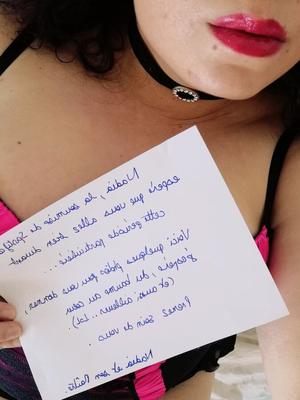 Nadia, la soumise de
espère que vous allez bien durant
cette période particulière...
Voici quelques photos pour vous donner,
j'espère, du baume au cœur
(et aussi, ailleurs... lol)
Prenez soin de vous.
Nadia et son Maître